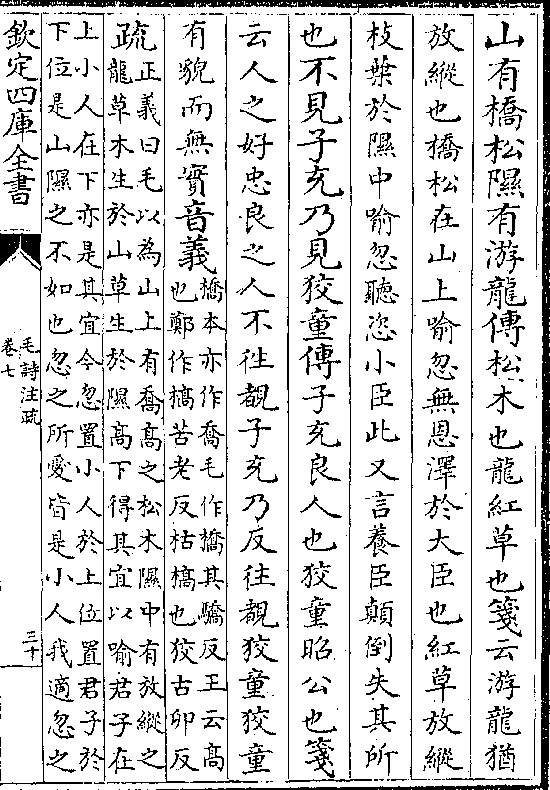 山有橋松隰有游龍傳松木也龍紅草也箋云游龍猶
放縱也橋松在山上喻忽無恩澤於大臣也紅草放縱
枝葉於隰中喻忽聽恣小臣此又言養臣顛倒失其所
也不見子充乃見狡童傳子充良人也狡童昭公也箋
云人之好忠良之人不往覩子充乃反往覩狡童狡童
有貌而無實音義橋本亦作喬毛作橋其驕反王云高
也鄭作槁苦老反枯槁也狡古卯反
疏正義曰毛以為山上有喬高之松木隰中有放縱之
龍草木生於山草生於隰高下得其宜以喻君子在
上小人在下亦是其宜今忽置小人於上位置君子於
下位是山隰之不如也忽之所愛皆是小人我適忽之
欽定四庫全書
毛詩注疏
卷七
三十